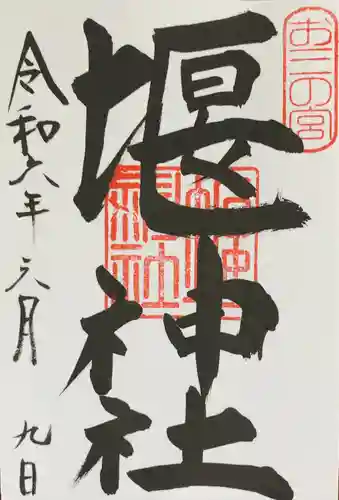 お三の宮
堰神社
堰神社
令和六年六月九日